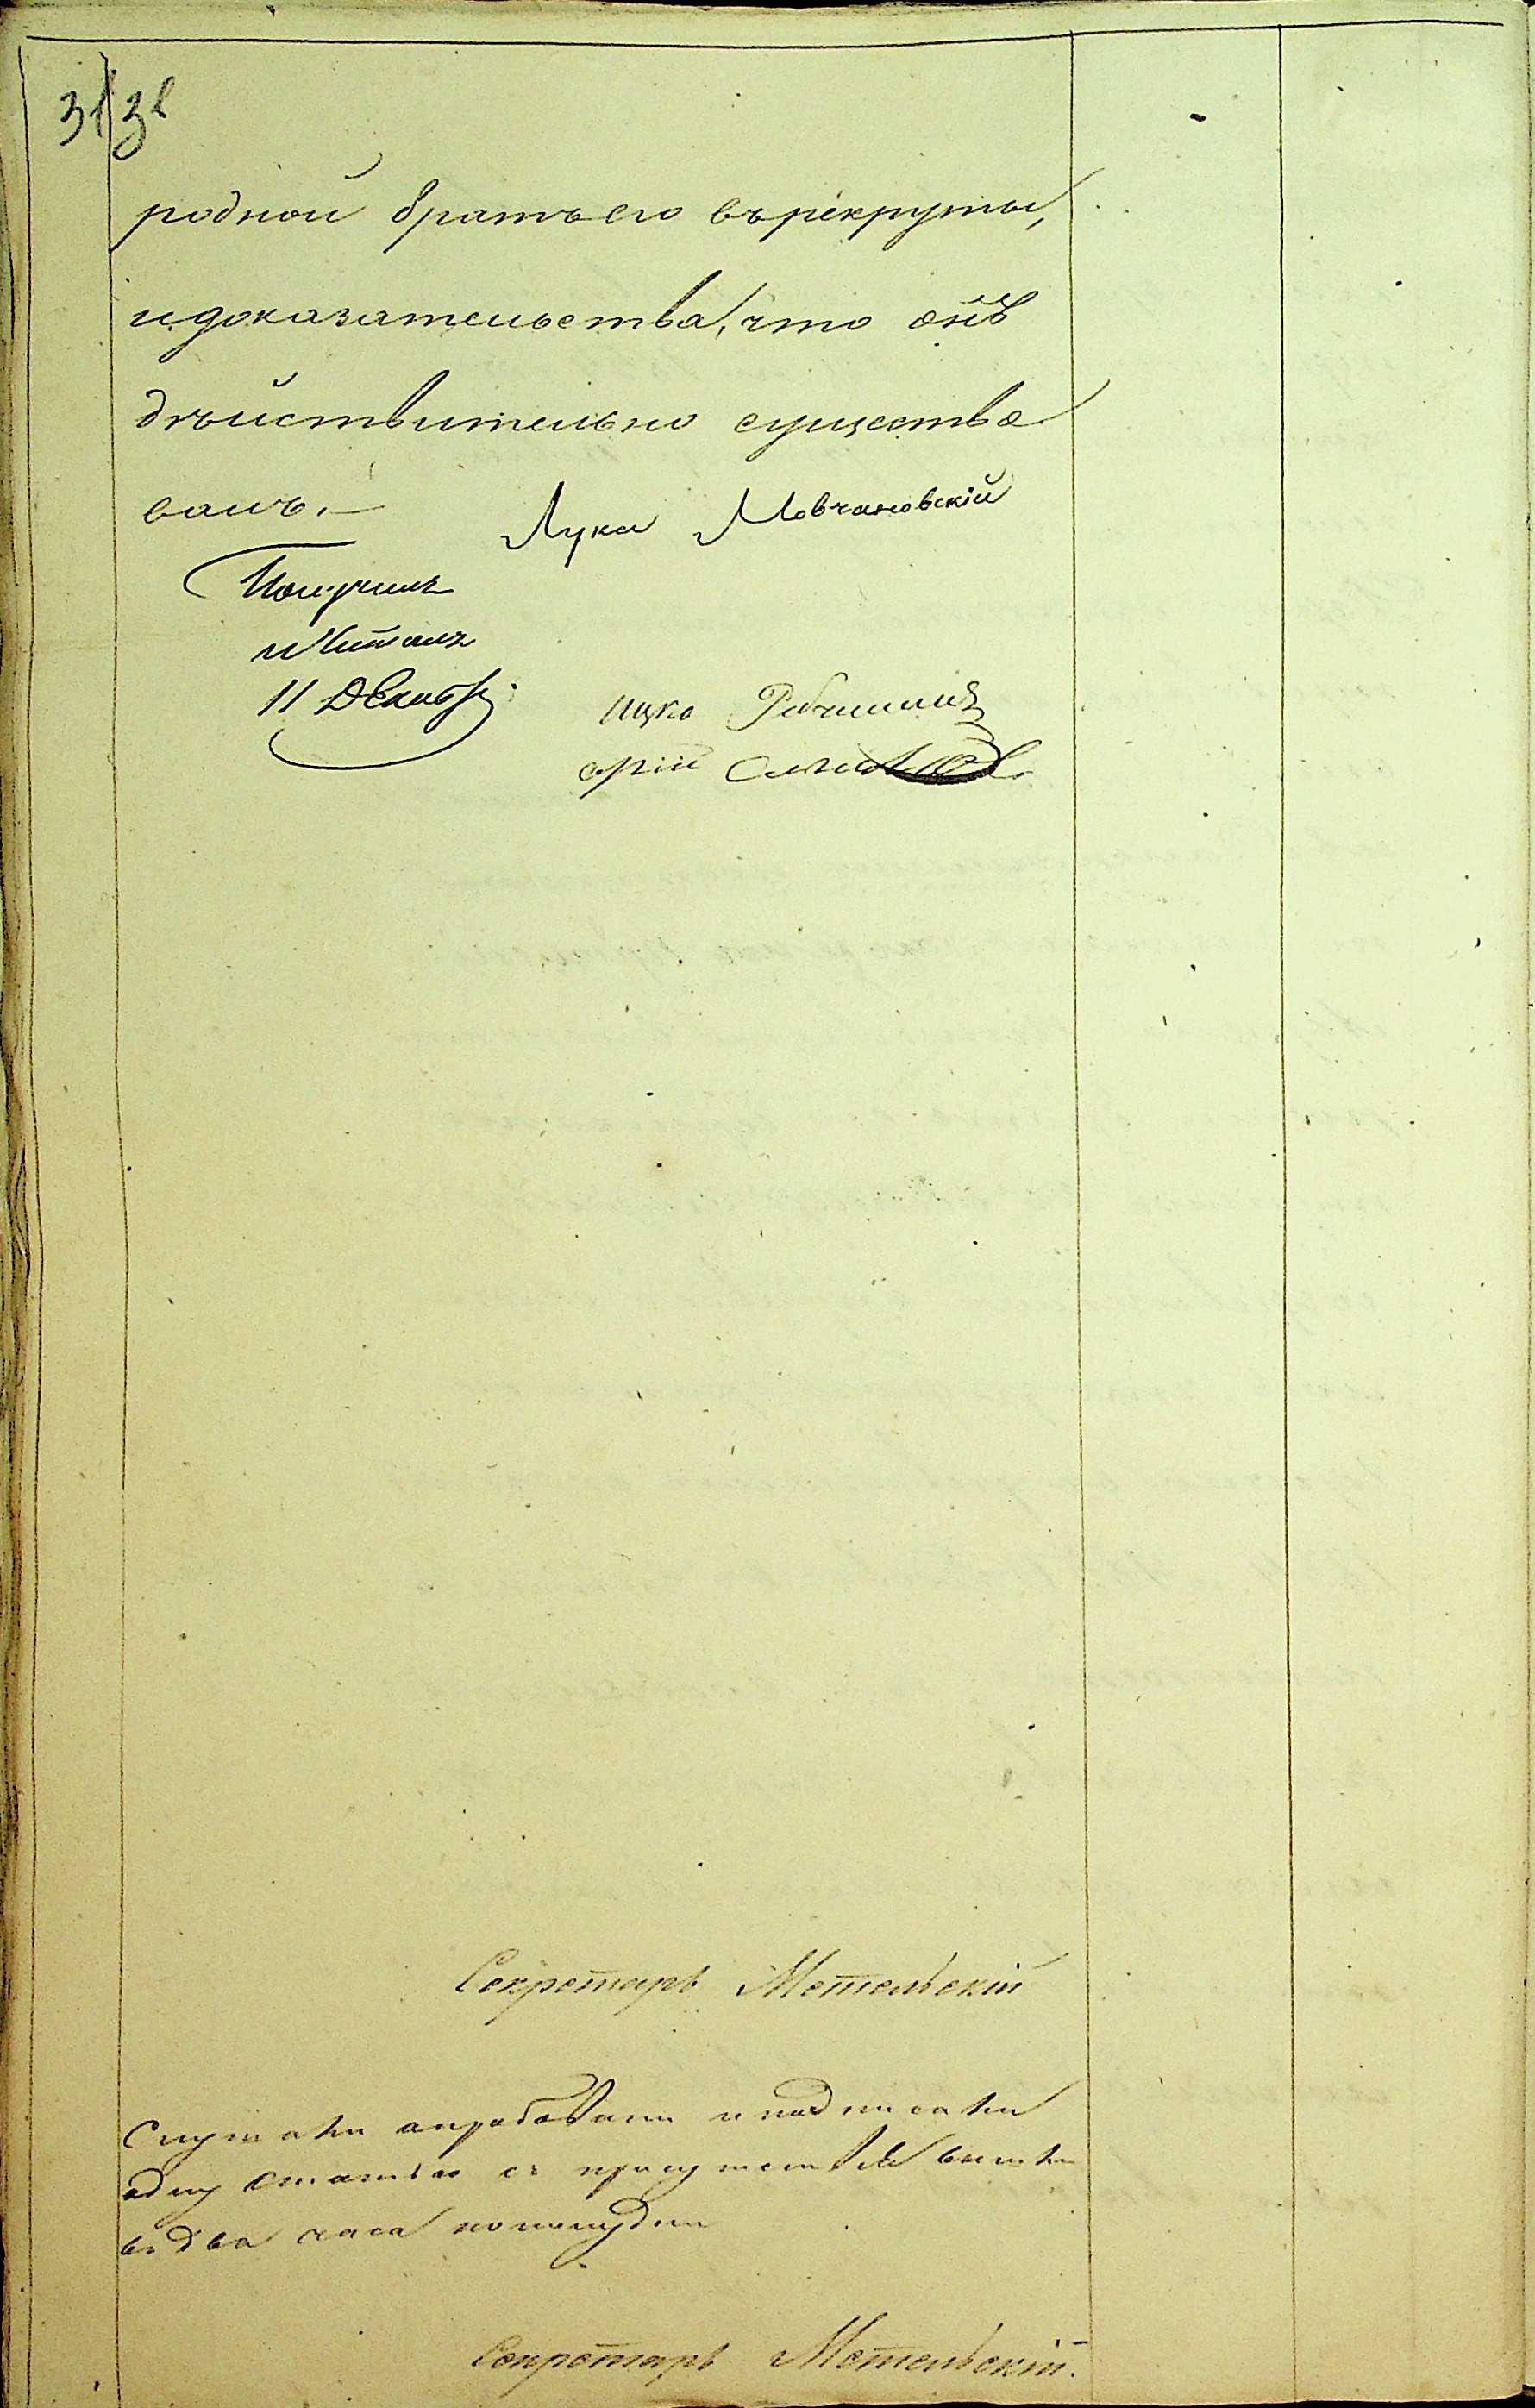 родной братъ его въ рекруты,
и доказательства, что онъ
дѣйствительно существо
валъ. —
Лука Мовчановскій
Получилъ
и Читалъ
11 Декабр
ицко
Секретарь Метельскій
Слушали апробовали и подписали
одну статью съ присутствія вышли
въ два часа пополудни
Секретарь Метельскій.